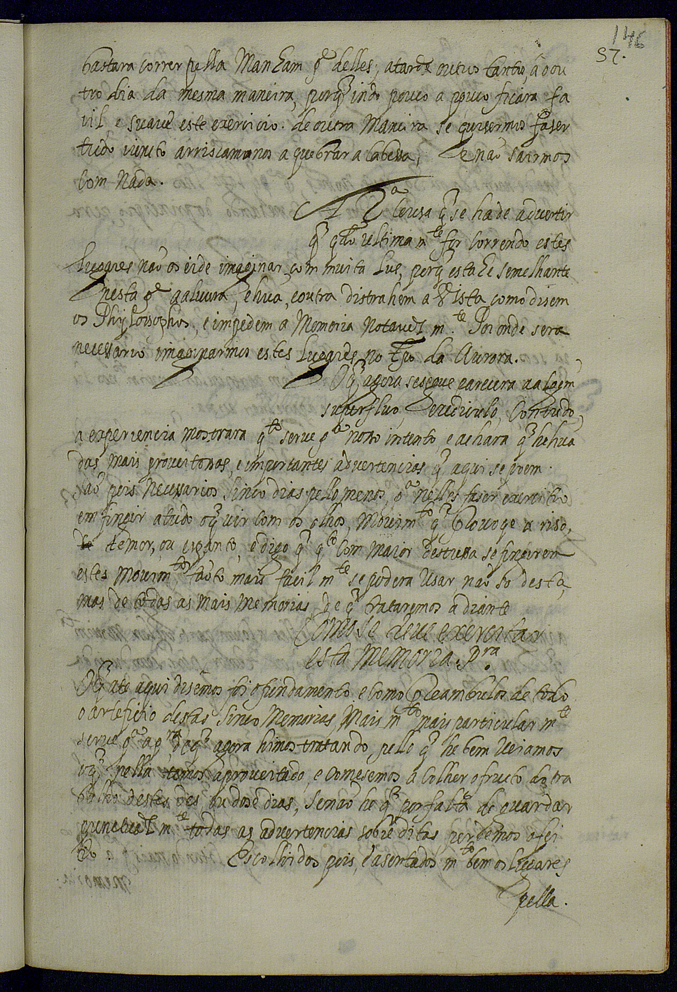 146
57.
bastara correr pella Manham q̃ delles, a tarde outro tanto, a ou
tro dia da mesma maneira, porq̃ indo pouco a pouco ficara fa
cil, e suave este exercicio. de outra Maneira se quisermos faser
tudo junto arriscamonos a quebrar a cabessa, e não sairmos
com nada.
A 2ª Cousa q̃ se ha de advertir
q̃ qdo ultima mte for correndo estes
Lugares não os eide imaginar com muita Lus, porq̃ esta he semelhante
nesta, e hũa, e outra distrahem a Vista, como disem
os Phylosophos, e impedem a Memoria Notavel mte. Por onde sera
necessario imaginarmos estes Lugares no Tpo da Aurora.
O q̃ agora se segue parecera a algũ
superfluo, e rediculo, Comtudo
a experiencia mostrara qto serve pa nosso intento, e achara q̃ he hũa
das mais proveitosas, e importantes advertencias q̃ aqui se poem.
são pois Necessarios Sinco dias pello menos, pa nelles faser exercitio
em fingir a tudo o q̃ vir com os olhos, Movimto q̃ Provoge a riso,
temor, ou espanto, e digo q̃ qto Com maior destresa se fingirem
estes Movimtos tãoto mais facil mte se podera Usar não so desta,
mas de todas as mais Memorias de q̃ trataremos adiante
Como se deve exercitar
esta Memoria. Pra
O q̃ ate aqui disemos foi o fundamento e como Preambulo de todo
o arteficio destas Sinco Memorias Mais mto mais particular mte
serve pa a q̃ agora himos tratando pello q̃ he bem Vejamos
o q̃ temos aproveitado, e Comesemos a Colher o fructo do tra
balho destes dias, Senão he q̃ por falta de guardar
todas as advertencias sobre ditas, perdemos o fei
to Escolhidos pois e asertados mto bem os Lugares
pella.